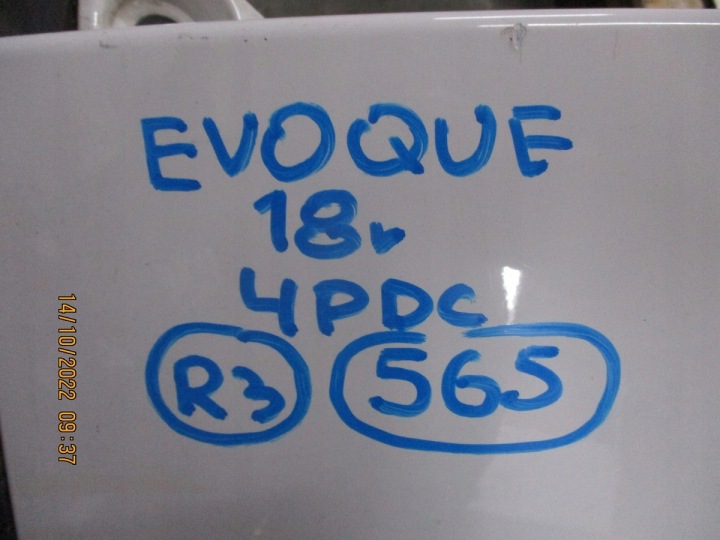 EVOQUE
18r
4PDC
R3 565
14/10/2022 09:37